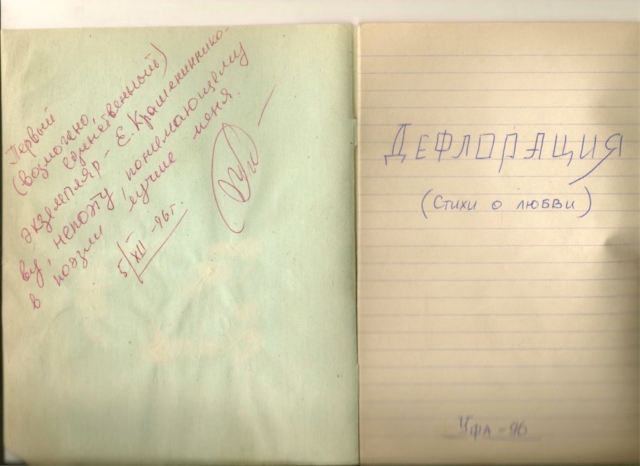 Первый
(возможно,
единственный)
экземпляр - Е. Крашениннико-
ву, непоэту, понимающему
в поэзии лучше меня.
5/XII -96г.
ДЕФЛОРАЦИЯ
(СТИХИ О ЛЮБВИ)
УФА - 96